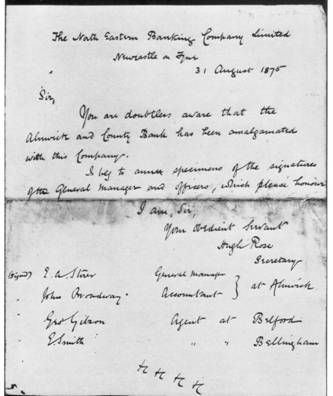 The North Eastern Banking Company Limited
Newcastle on Tyne
31 August 1875
Sir,
You are doubtless aware that the
Alnwick and County Bank has been amalgamated
with this Company.
I beg to annex specimens of the signatures
of the General Manager and officers, which please honour
I am, Sir,
Your obedient Servant
Hugh Rose
Secretary
(signed) E. A. Storer General Manager } at Alnwick
" John Broadway. Accountant
" Geo Gibson Agent at Belford
" E Smith " " Bellingham